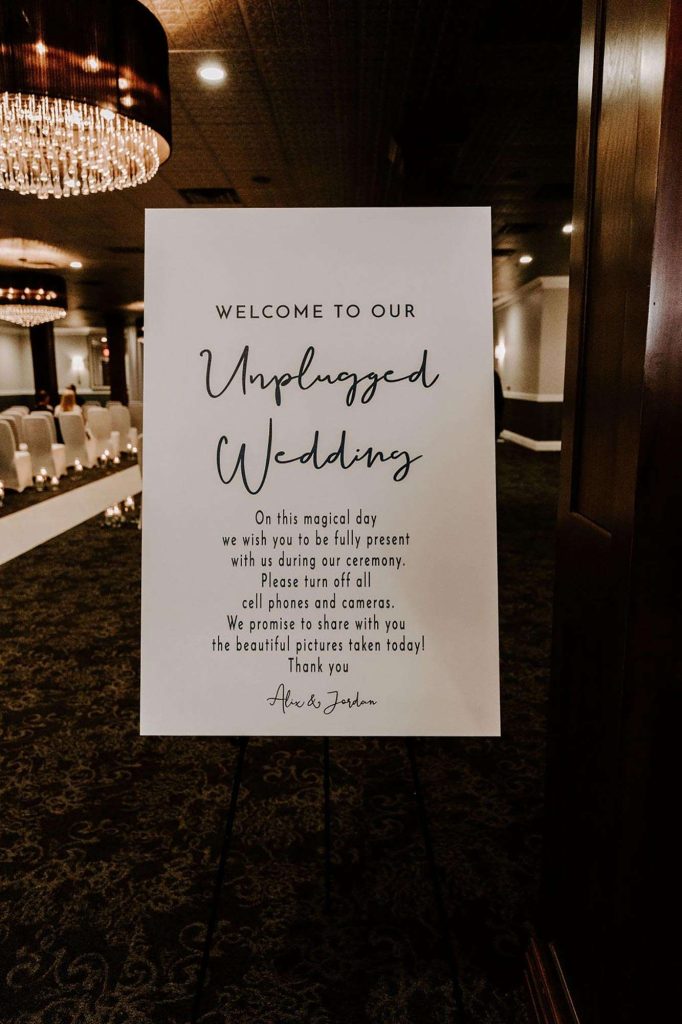 WELCOME TO OUR
Unplugged
Wedding
On this magical day
we wish you to be fully present
with us during our ceremony.
Please turn off all
cell phones and cameras.
We promise to share with you
the beautiful pictures taken today!
Thank you
Alix & Jordan